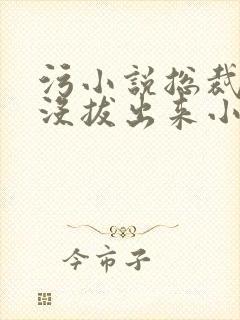 污小说总裁
没拔出来小
今市子